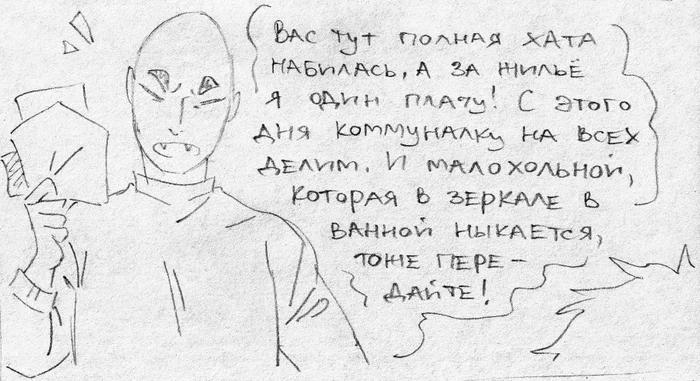 Вас тут полная хата
набилась, а за жильё
я один плачу! С этого
дня коммуналку на всех
делим. И малохольной,
которая в зеркале в
ванной ныкается,
тоже пере-
дайте!